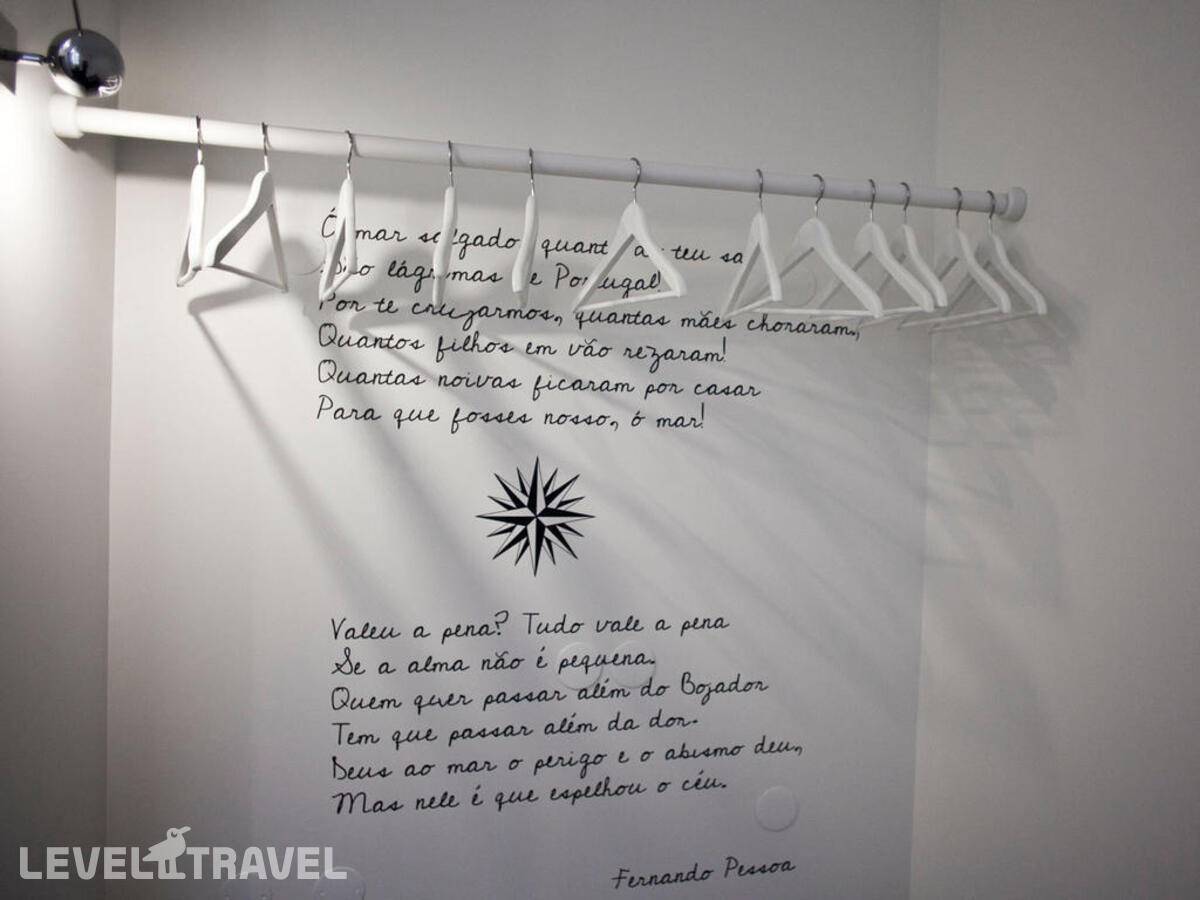 Ó mar salgado, quanto do teu sal
São lágrimas de Portugal!
Por te cruzarmos, quantas mães choraram,
Quantos filhos em vão rezaram!
Quantas noivas ficaram por casar
Para que fosses nosso, ó mar!
Valeu a pena? Tudo vale a pena
Se a alma não é pequena.
Quem quer passar além do Bojador
Tem que passar além da dor.
Deus ao mar o perigo e o abismo deu,
Mas nele é que espelhou o céu.
Fernando Pessoa
LEVEL TRAVEL